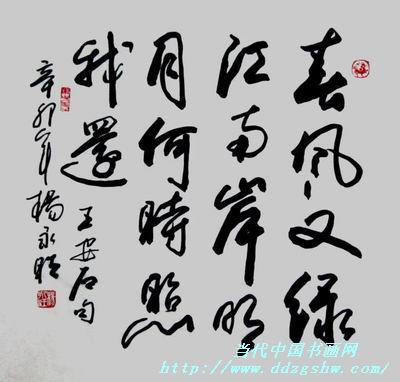 春风又绿
江南岸明
月何時照
我還
王安石句
辛卯年楊永
当代中国书画网
http://www.ddzgshw.com